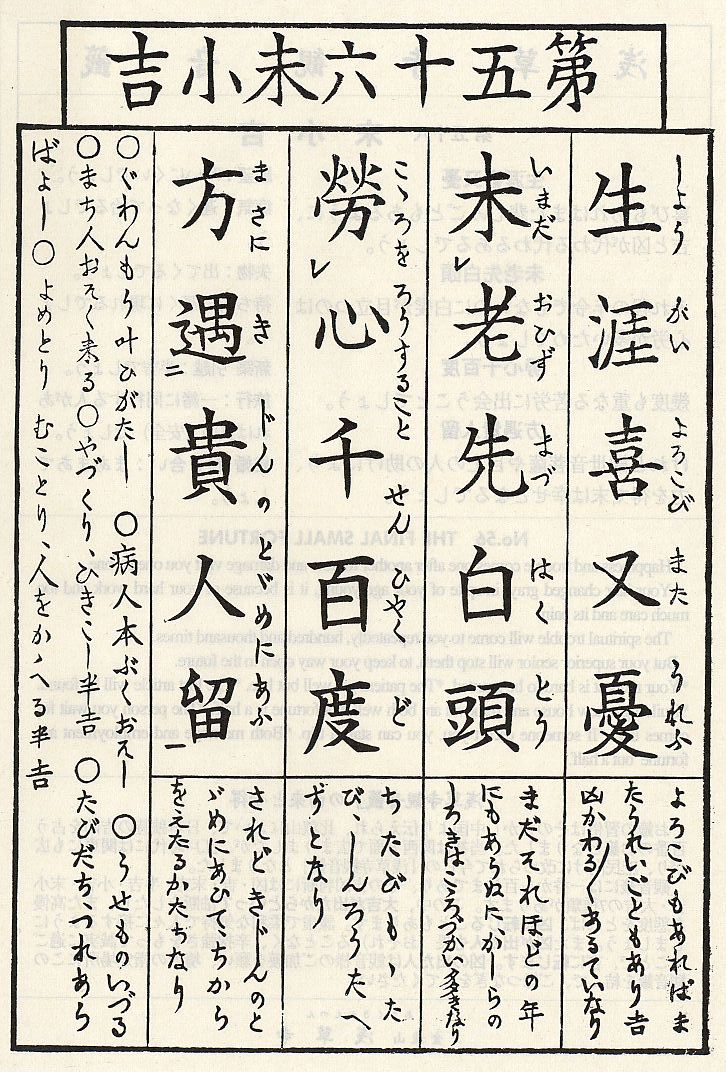 第五十六末小吉
生涯喜又憂
しようがいよろこびまたうれふ
よろこびもあればま
たうれいごともあり吉
凶かわる〲あるていなり
未レ老先白頭
いまだおひずまづはくとう
まだそれほどの年
にもあらぬにかしらの
しろきはこゝろづかい多きなり
勞レ心千百度
こゝろをろうすることせんひやくど
ちたびもゝた
び、しんろうたへ
ずとなり
方遇二貴人留一
まさにきじんのとゞめにあふ
されどきじんのと
ゞめにあひてちから
をえたるかたちなり
〇ぐわんもう叶ひがたし 〇病人本ぶくおそし 〇うせものいづる
〇まち人おそく来る〇やづくり、ひきこし半吉 〇たびだち、つれあら
ばよし〇よめとり、むことり、人をかゝへる半吉